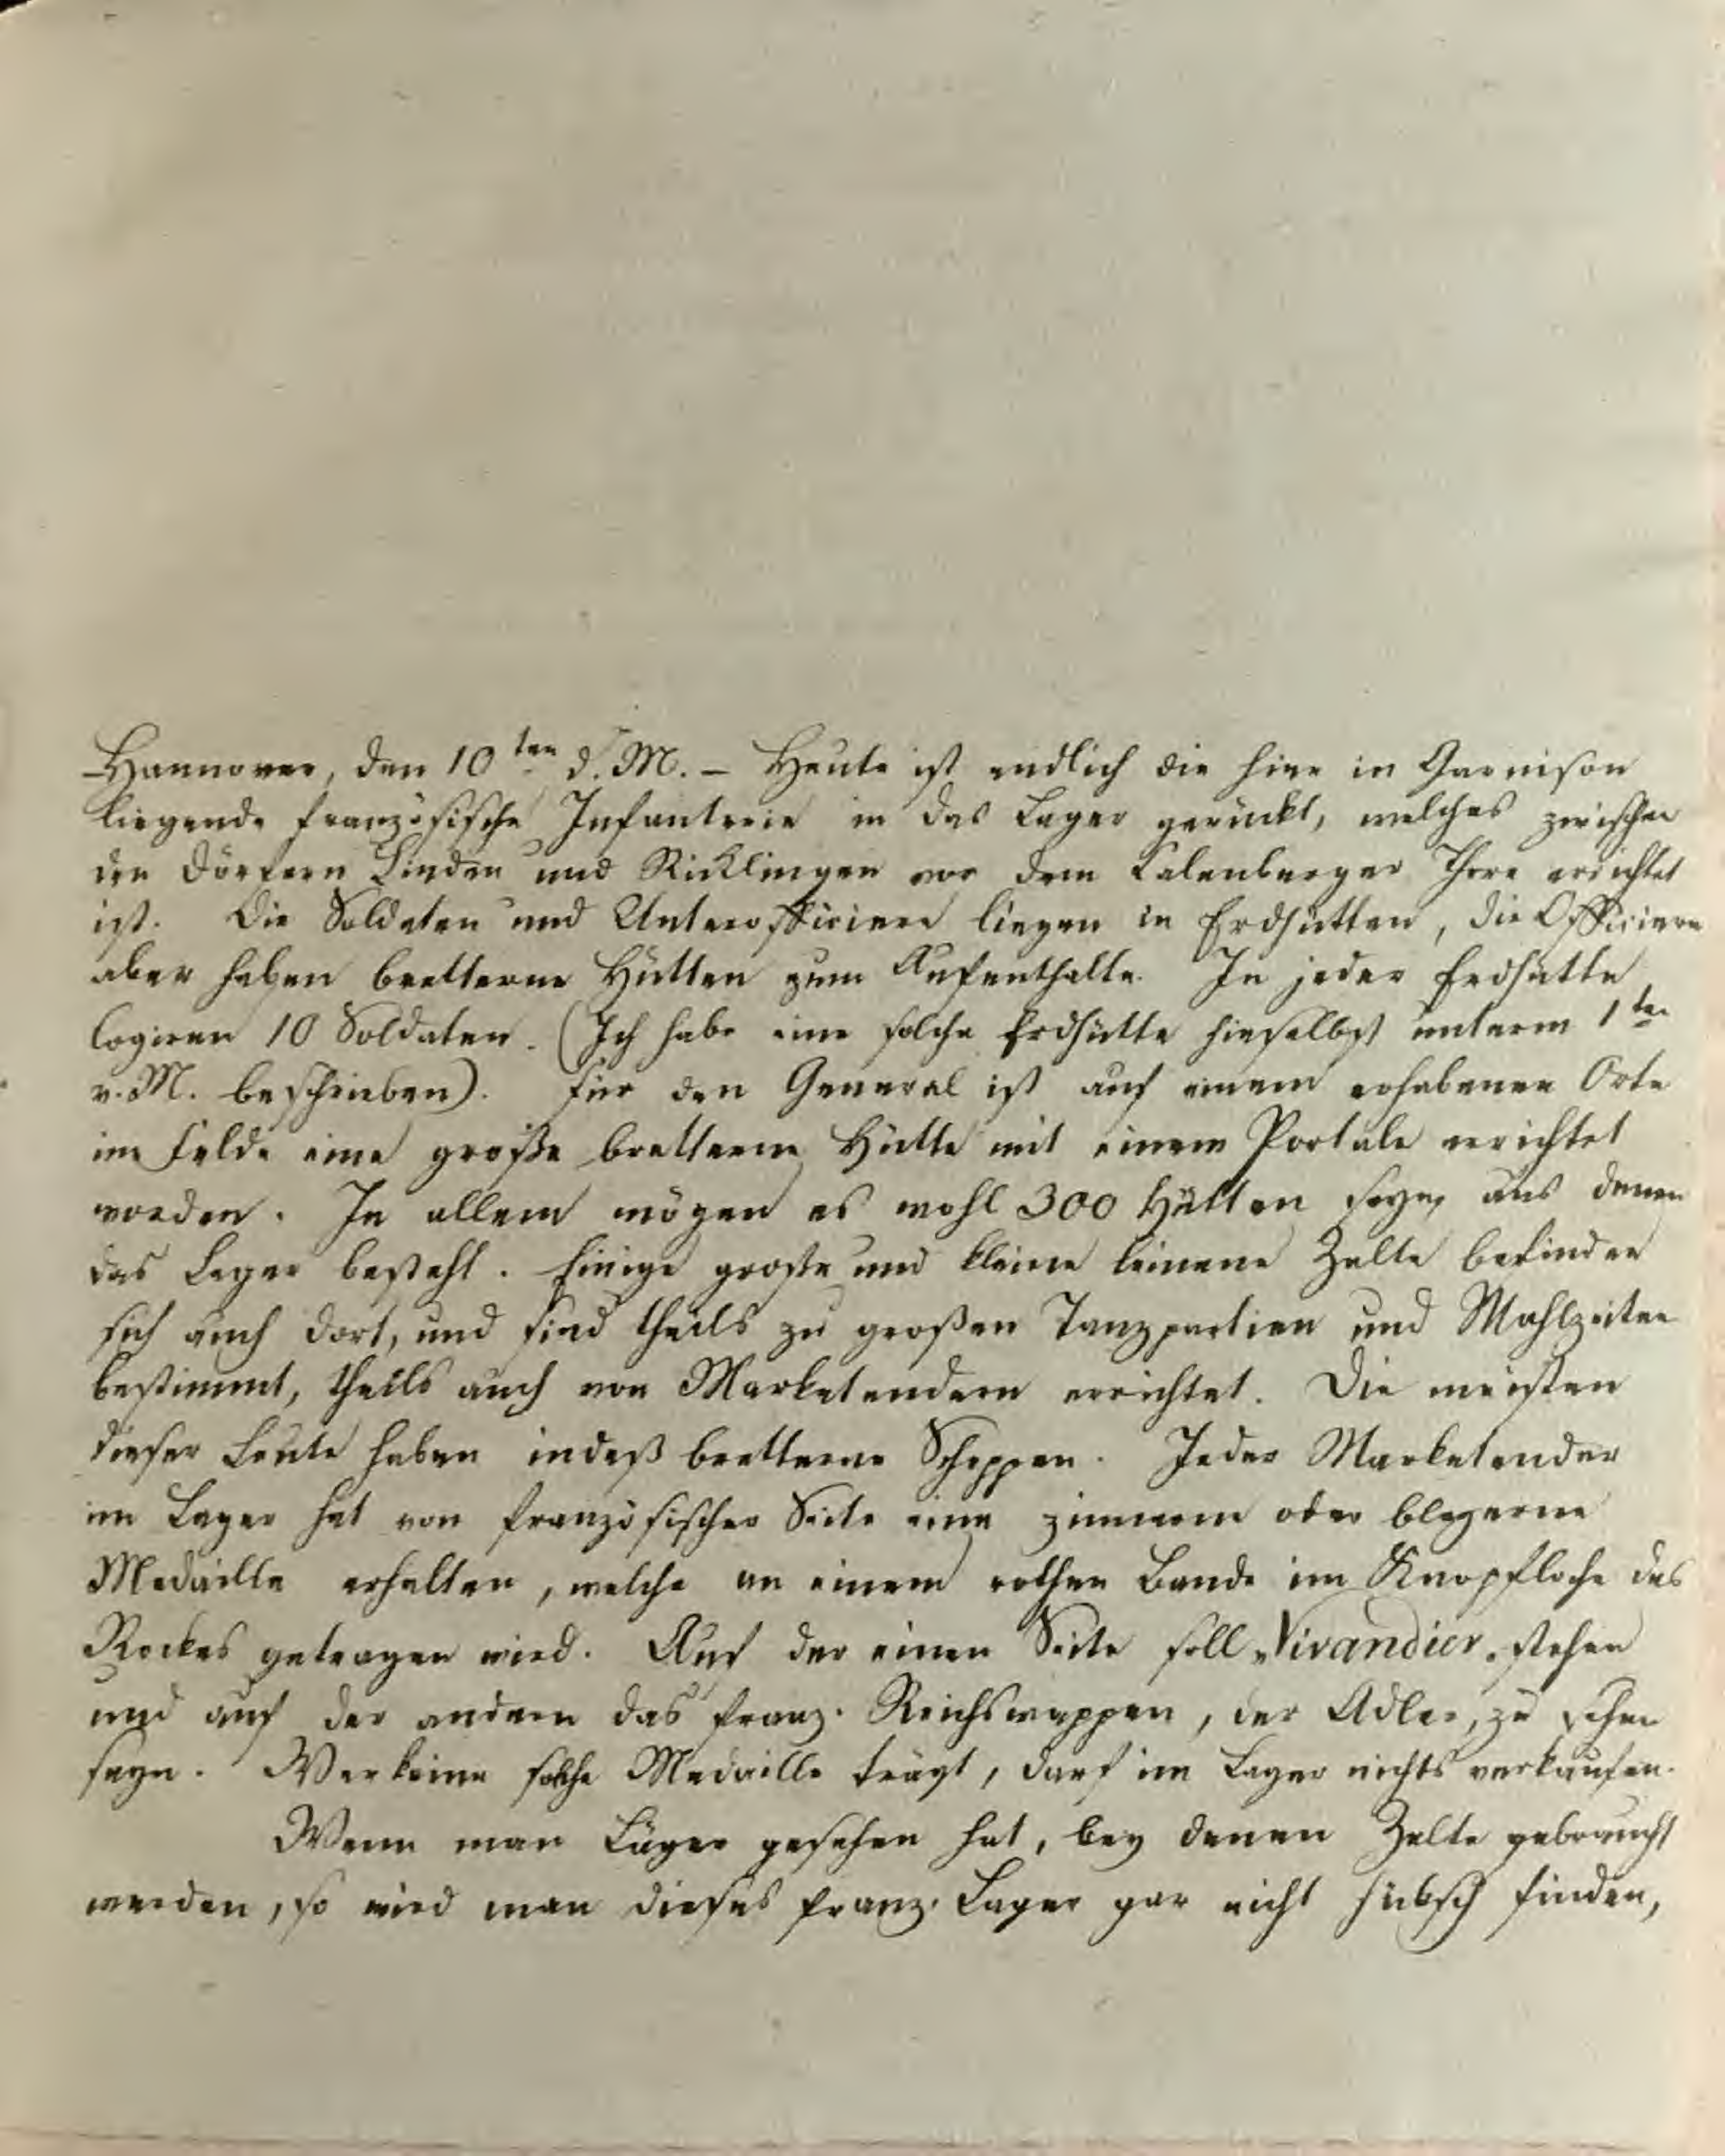 Hannover, den 10ten d. M. – Heute ist endlich die hier in Garnison
liegende französische Infanterie in das Lager gerückt, welches zwischen
den Dörfern Linden und Ricklingen vor dem Calenberger Thore errichtet
ist. Die Soldaten und Unterofficiere liegen in Erdhütten, die Officiere
aber haben bretterne Hütten zum Aufenthalte. In jeder Erdhütte
logiren 10 Soldaten. (Ich habe eine solche Erdhütte hieselbst unterm 1ten
v. M. beschrieben). Für den General ist auf einem erhabenen Orte
im Felde eine große bretterne Hütte mit einem Portale errichtet
worden. In allem mögen es wohl 300 Hütten seyn, aus denen
das Lager besteht. Einige große und kleine leinene Zelte befinden
sich auch dort, und sind theils zu großen Tanzpartien und Mahlzeiten
bestimmt, theils auch von Marketendern errichtet. Die meisten
dieser Leute haben indeß bretterne Schoppen. Jeder Marketender
im Lager hat von französischer Seite eine zinnerne oder bleyerne
Medaille erhalten, welche an einem rothen Bande im Knopfloche des
Rockes getragen wird. Auf der einen Seite soll „Vivandier„ stehen
und auf der andern das franz. Reichswappen, der Adler, zu sehen
seyn. Wer keine solche Medaille trägt, darf im Lager nichts verkaufen.
Wenn man Läger gesehen hat, bey denen Zelte gebraucht
werden, so wird man dieses franz. Lager gar nicht hübsch finden,